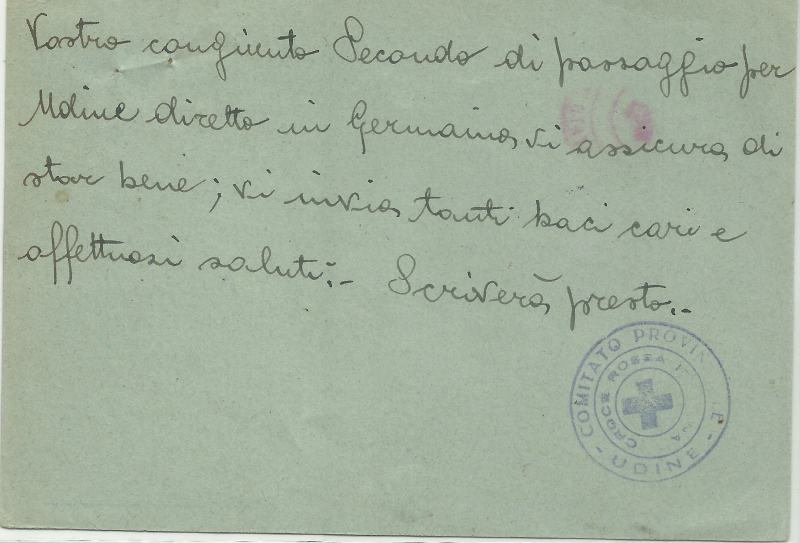 Vostro congiunto Secondo di passaggio per
Udine diretto in Germania, vi assicura di
star bene; vi invia tanti baci cari e
affettuosi saluti:- Scriverà presto.-
COMITATO PROVIN LE - UDINE -
CROCE ROSSA I NA